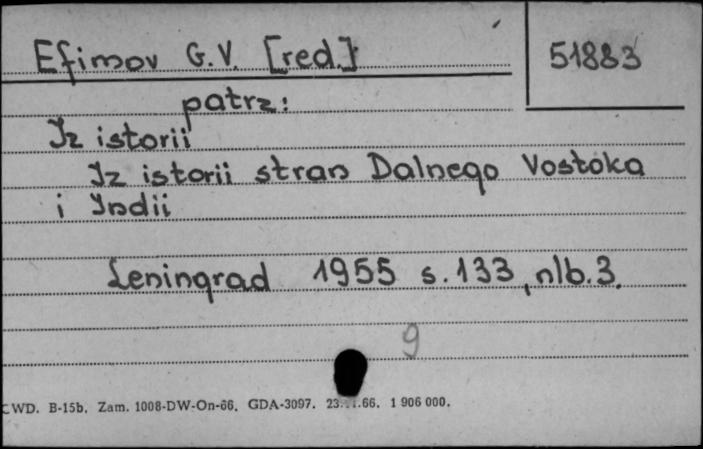 Efimov G.V. [red.]
51883
patrz:
Iz istorii
Iz istorii stran Dalnego Vostoka
i Indii
Leningrad 1955 s. 133, nlb. 3.
9
CWD. B-15b. Zam. 1008-DW-On-66. GDA-3097. 1 906 000.